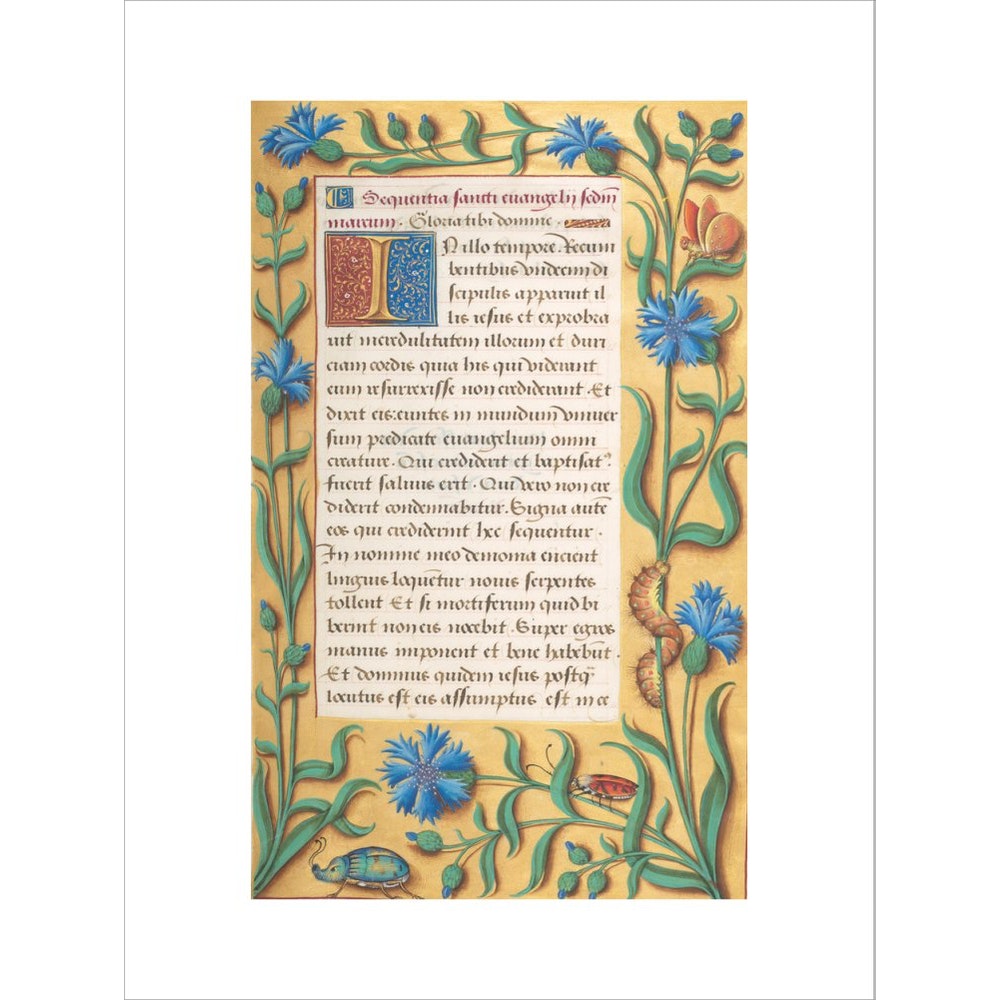 Sequentia sancti euangelii scdm̄
marcum. Gloria tibi domine.
IN illo tempore. Recum
bentibus vndecim di
scipulis apparuit il
lis iesus et exprobra
uit incredulitatem illorum et duri
ciam cordis quia his qui viderant
eum resurrexisse non crediderant. Et
dixit eis: euntes in mundum vniuer
sum predicate euangelium omni
creature. Qui crediderit et baptisatꝰ
fuerit saluus erit. Qui vero non cre
diderit condemnabitur. Signa autē
eos qui crediderint hec sequentur.
In nomine meo demonia eiicient
linguis loquētur nouis serpentes
tollent Et si mortiferum quid bi
berint non eis nocebit. Super egros
manus imponent et bene habebūt.
Et dominus quidem iesus postq̄
locutus est eis assumptus est in ce